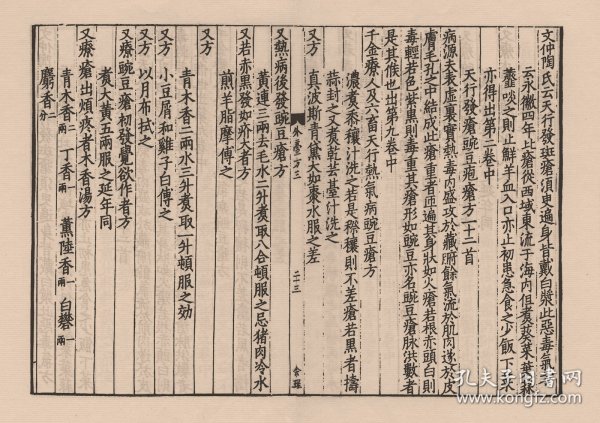 文仲陶氏云天行發斑瘡須臾遍身皆戴白漿此惡毒氣
云永徽四年此瘡從西域東流于海內但煮葵菜葉蒜
虀啖之則止鮮羊血入口亦止初患急食之少飯下菜
亦得出第二卷中
天行發瘡豌豆疱瘡方一十二首
病源夫表虛裏實熱毒內盛攻於藏腑餘氣流於肌肉遂於皮
膚毛孔之中結成此瘡重者匝遍其身狀如火瘡若根赤頭白則
毒輕若色紫黑則毒重其瘡形如豌豆亦名豌豆瘡脉洪數者
是其候也出第九卷中
千金療人及六畜天行熱氣病豌豆瘡方
濃煮黍穰汁洗之若是穄穰則不差瘡若黑者擣
蒜封之又煮乾芸薹汁洗之
又方
真波斯青黛大如棗水服之差
外臺方三
二十三
又熱病後發豌豆瘡方
黃連三兩去毛水二升煮取八合頓服之忌猪肉冷水
又若赤黑發如疥大者方
煎羊脂摩傅之
又方
青木香二兩水三升煮取一升頓服之効
又方
小豆屑和雞子白傅之
又方 以月布拭之
又療豌豆瘡初發覺欲作者方
煮大黃五兩服之延年同
又療瘡出煩疼者木香湯方
青木香二兩 丁香一兩 薰陸香一兩 白礬一兩
麝香二分
孔夫子旧书网
www.kongfz.com